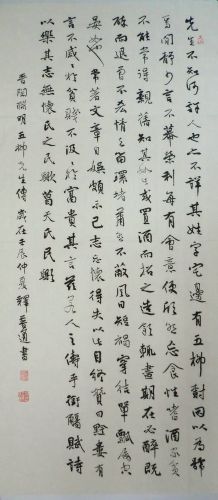 先生不知何許人也亦不詳其姓字宅邊有五柳樹因以為號
焉閑靜少言不慕榮利每有會意便欣然忘食性嗜酒家貧
不能常得親舊知其如此或置酒而招之造飲輒盡期在必醉既
醉而退曾不吝情去留環堵蕭然不蔽風日短褐穿結簞瓢屢空
晏如也常著文章自娛頗示己志忘懷得失以此自終贊曰黔婁有
言不戚戚於貧賤不汲汲於富貴其言茲若人之儔乎銜觴賦詩
以樂其志無懷氏之民歟葛天氏之民歟
晉陶淵明五柳先生傳歲在辰仲夏釋書